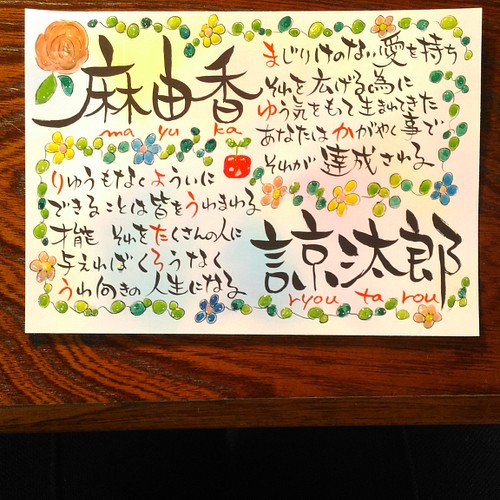 麻由香
ma yu ka
まじりけのない愛を持ち
それを広げる為に
ゆう気をもて生まれてきた
あなたは かがやく事で
それが 達成される
りゅうもなくよういに
できることは皆をうわまわる
才能 それをたくさんの人に
与えればくろうなく
うわ向きの人生になる
諒汰郎
ryou ta rou